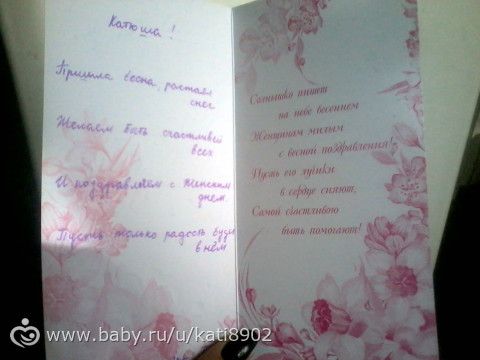 Катюша!
Пришла весна, растаял
снег
Желаем быть счастливей
всех
И поздравляем с женским
днем.
Пусть только радость будет
в нём
Солнышко пишет
на небе весеннем
Женщинам милым
с весной поздравления!
Пусть его лучики
в сердце сияют,
Самой счастливою
быть помогают!
www.baby.ru/u/kati8902